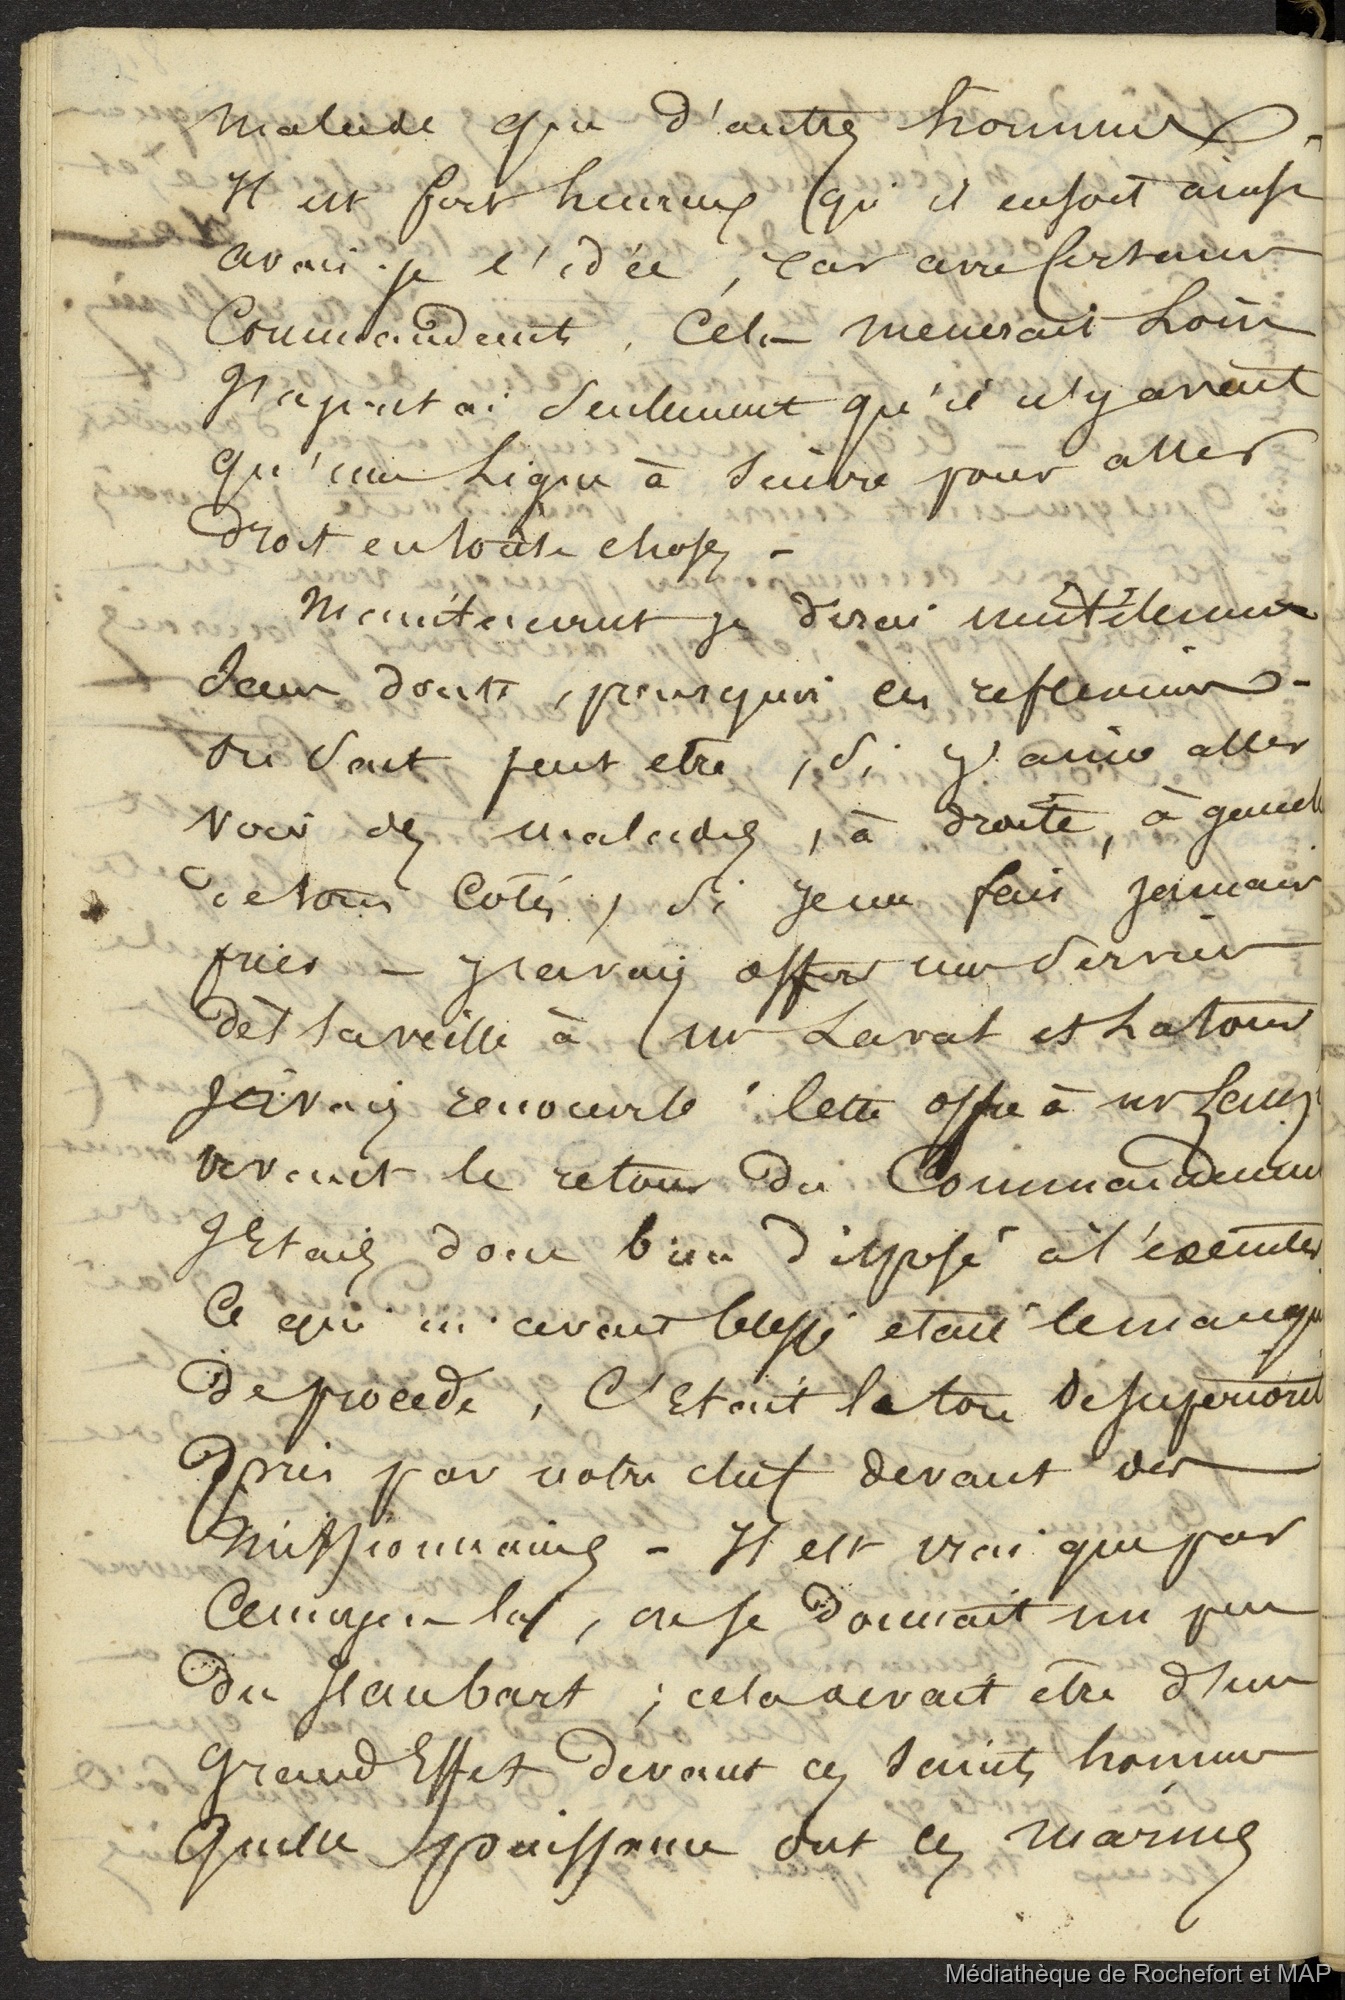 malade que d'autres hommes -
Il est fort heureux qu'il en soit ainsi
avais-je l'idée, car avec certains
Commandants, cela menerait Loin
J'ajoutai seulement qu'il n'y avait
qu'une Ligne à suivre pour aller
droit en toute choses -
Maintenant je dirai inutilement
sans doute, pourquoi ces reflexions -
On sait peut etre, si j'aime aller
voir des malades, à droite, à gauche
de tous cotés, si je me fais jamais
prier - j'avais offert mes services
dès la veille à mr Laval et Latour
J'avais renouvelé cette offre à mr
avant le retour du Commandant
J'Etais donc bien disposé à l'exécuter.
Ce qui m'avait blessé etait le manque
de procede, C'Etait le ton de superiorité
pris par notre chef devant des
missionnaires - Il est vrai que par
ce moyen là, on se donnait un peu
du ; cela devait etre d'un
grand Effet devant ces saints hommes
Quelle puissance ont ces marins
Médiathèque de Rochefort et MAP